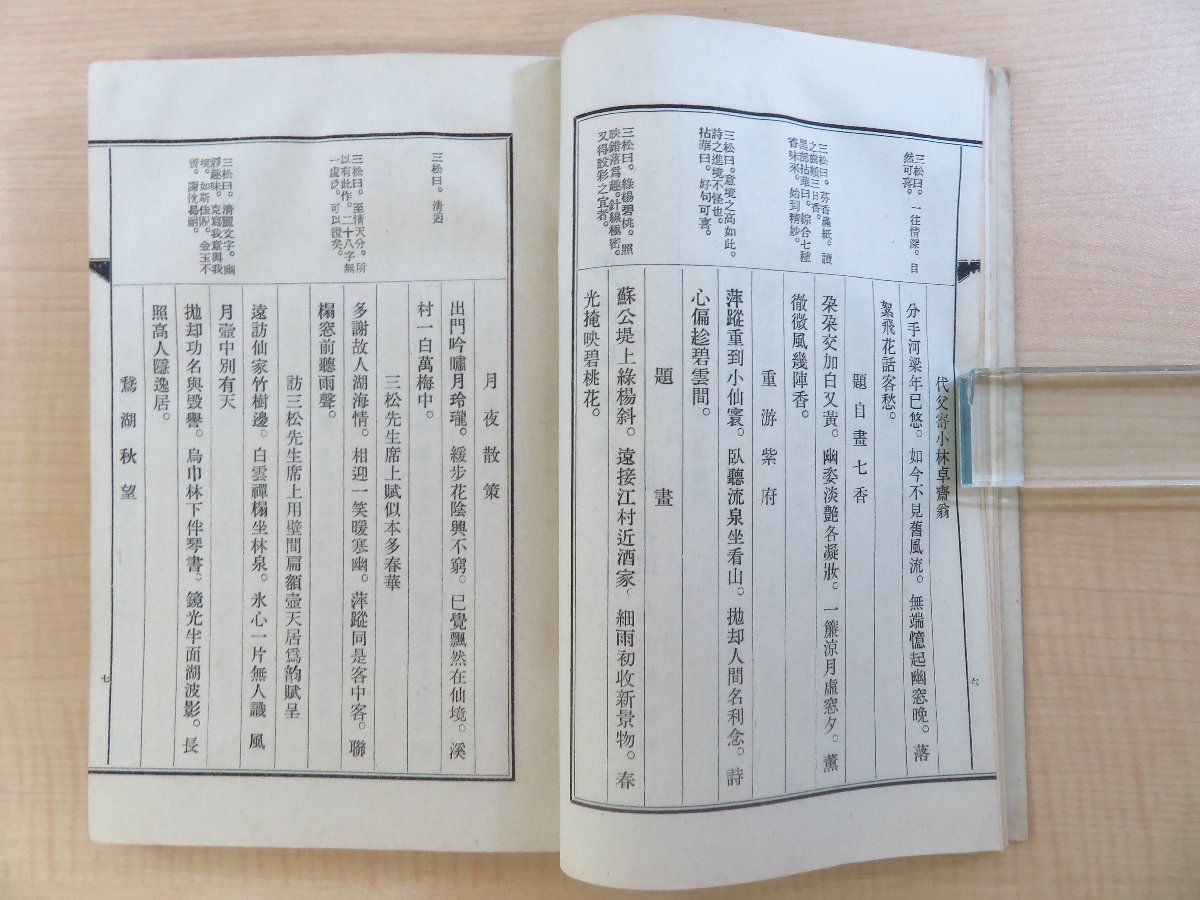 代父寄小林卓齋翁
分手河梁年已悠。如今不見舊風流。無端憶起幽窓晚。落
絮飛花話客愁。
題自畫七香
朶朶交加白又黃。幽姿淡艷各凝妝。一簾涼月虛窓夕。薰
徹微風幾陣香。
重游紫府
萍蹤重到小仙寰。臥聽流泉坐看山。拋却人間名利念。詩
心偏趁碧雲間。
題畫
蘇公堤上綠楊斜。遠接江村近酒家。細雨初收新景物。春
光掩映碧桃花。
三松曰。一往情深。自
然可喜。
三松曰。芬香滿紙。讀
之齒頰三日香。
黑部拈華曰。綜合七種
香味來。始到精妙。
三松曰。意境之高如此。
詩之進境不怪也。
拈華曰。好句可喜。
三松曰。綠楊碧桃。照
映錯落爲趣。針線極密。
又得設彩之宜者。
六
月夜散策
出門吟嘯月玲瓏。緩步花陰興不窮。已覺飄然在仙境。溪
村一白萬梅中。
三松先生席上賦似本多春華
多謝故人湖海情。相迎一笑暖寒幽。萍蹤同是客中客。聯
榻窓前聽雨聲。
訪三松先生席上用壁間扁額壺天居爲韵賦呈
遠訪仙家竹樹邊。白雲禪榻坐林泉。氷心一片無人識 風
月壺中別有天
拋却功名與毀譽。烏巾林下伴琴書。鏡光半面湖波影。長
照高人隱逸居。
鵞湖秋望
三松曰。清迥
三松曰。至情天分。所
以有此作。二十八字無
一虛泛。可以證矣。
三松曰。清麗文字。幽
靜趣味。克寫我意與我
境。如新佳什。金玉不
啻。謝忱曷罄。
七